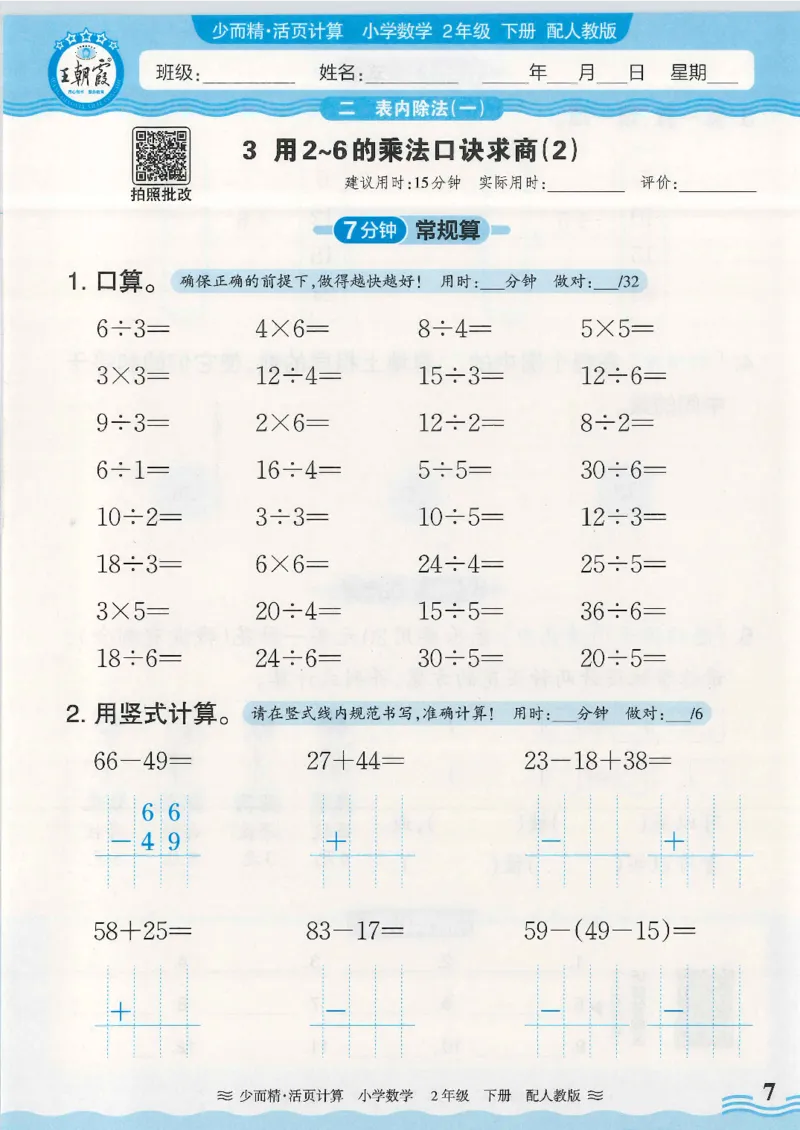 少而精·活页计算 小学数学 2年级 下册 配人教版
王朝霞
班级:__________ 姓名:__________ _____年___月___日 星期___
二 表内除法(一)
3 用2~6的乘法口诀求商(2)
建议用时:15分钟 实际用时:________ 评价:________
拍照批改
7分钟 常规算
1. 口算。 确保正确的前提下,做得越快越好! 用时:___分钟 做对:___/32
6÷3= 4×6= 8÷4= 5×5=
3×3= 12÷4= 15÷3= 12÷6=
9÷3= 2×6= 12÷2= 8÷2=
6÷1= 16÷4= 5÷5= 30÷6=
10÷2= 3÷3= 10÷5= 12÷3=
18÷3= 6×6= 24÷4= 25÷5=
3×5= 20÷4= 15÷5= 36÷6=
18÷6= 24÷6= 30÷5= 20÷5=
2. 用竖式计算。 请在竖式线内规范书写,准确计算! 用时:___分钟 做对:___/6
66-49= 27+44= 23-18+38=
6 6
- 4 9 + - +
58+25= 83-17= 59-(49-15)=
+ - - -
少而精·活页计算 小学数学 2年级 下册 配人教版
7